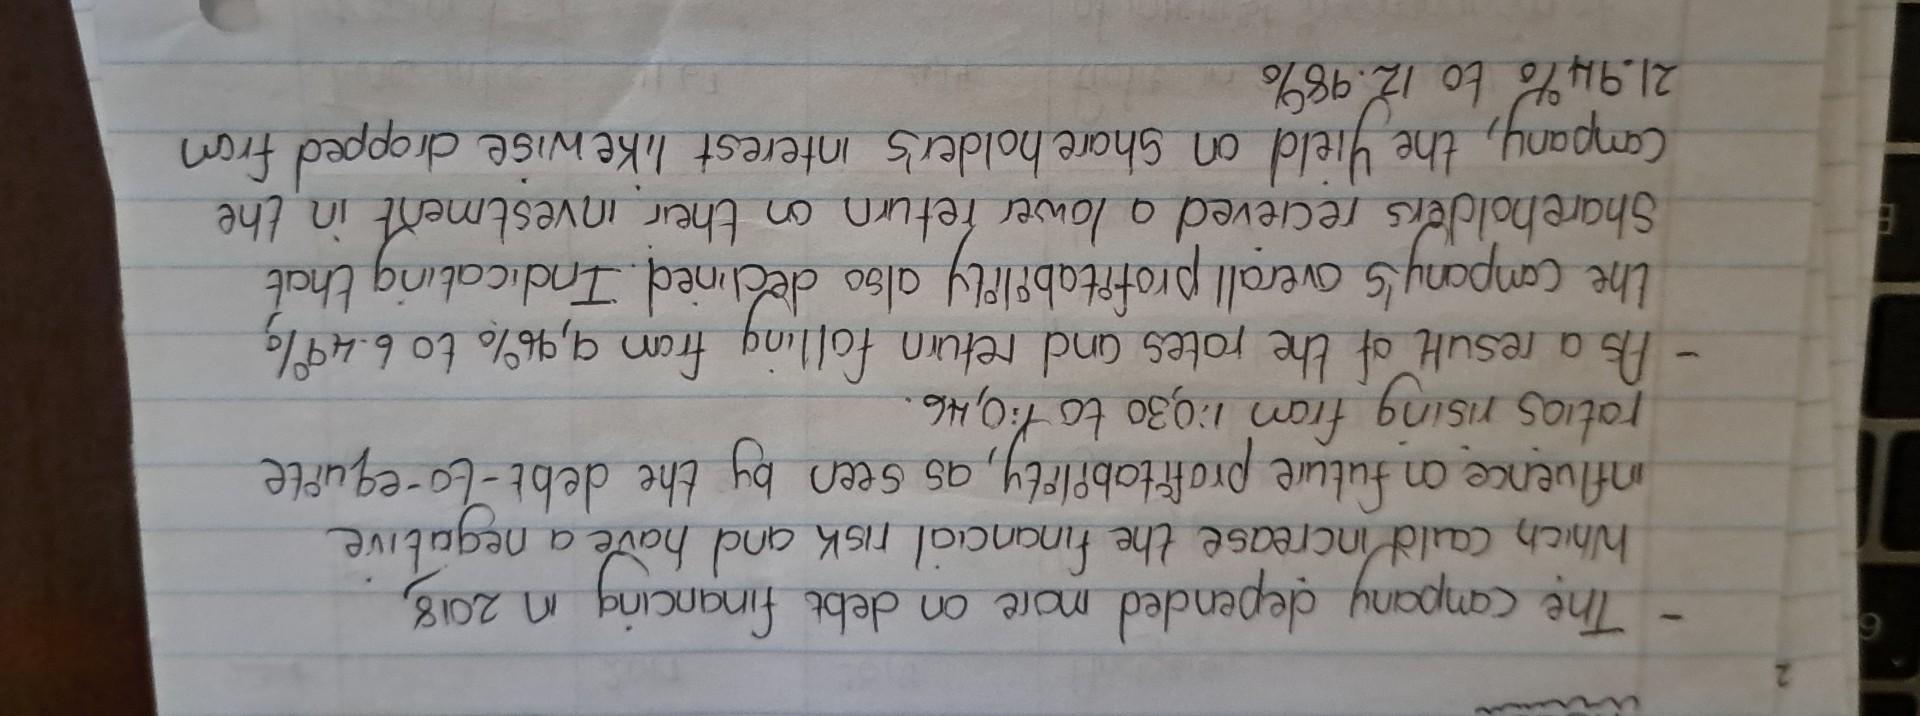 2
- The company depended more on debt financing in 2018,
which could increase the financial risk and have a negative
influence on future profitability, as seen by the debt-to-equite
ratios rising from 1:0,30 to 1:0,46.
- As a result of the rates and return falling from 9,96% to 6.49%,
the company's overall profitability also declined. Indicating that
Shareholders recieved a lower return on their investment in the
company, the yield on shareholder's interest likewise dropped from
21.94% to 12.98%